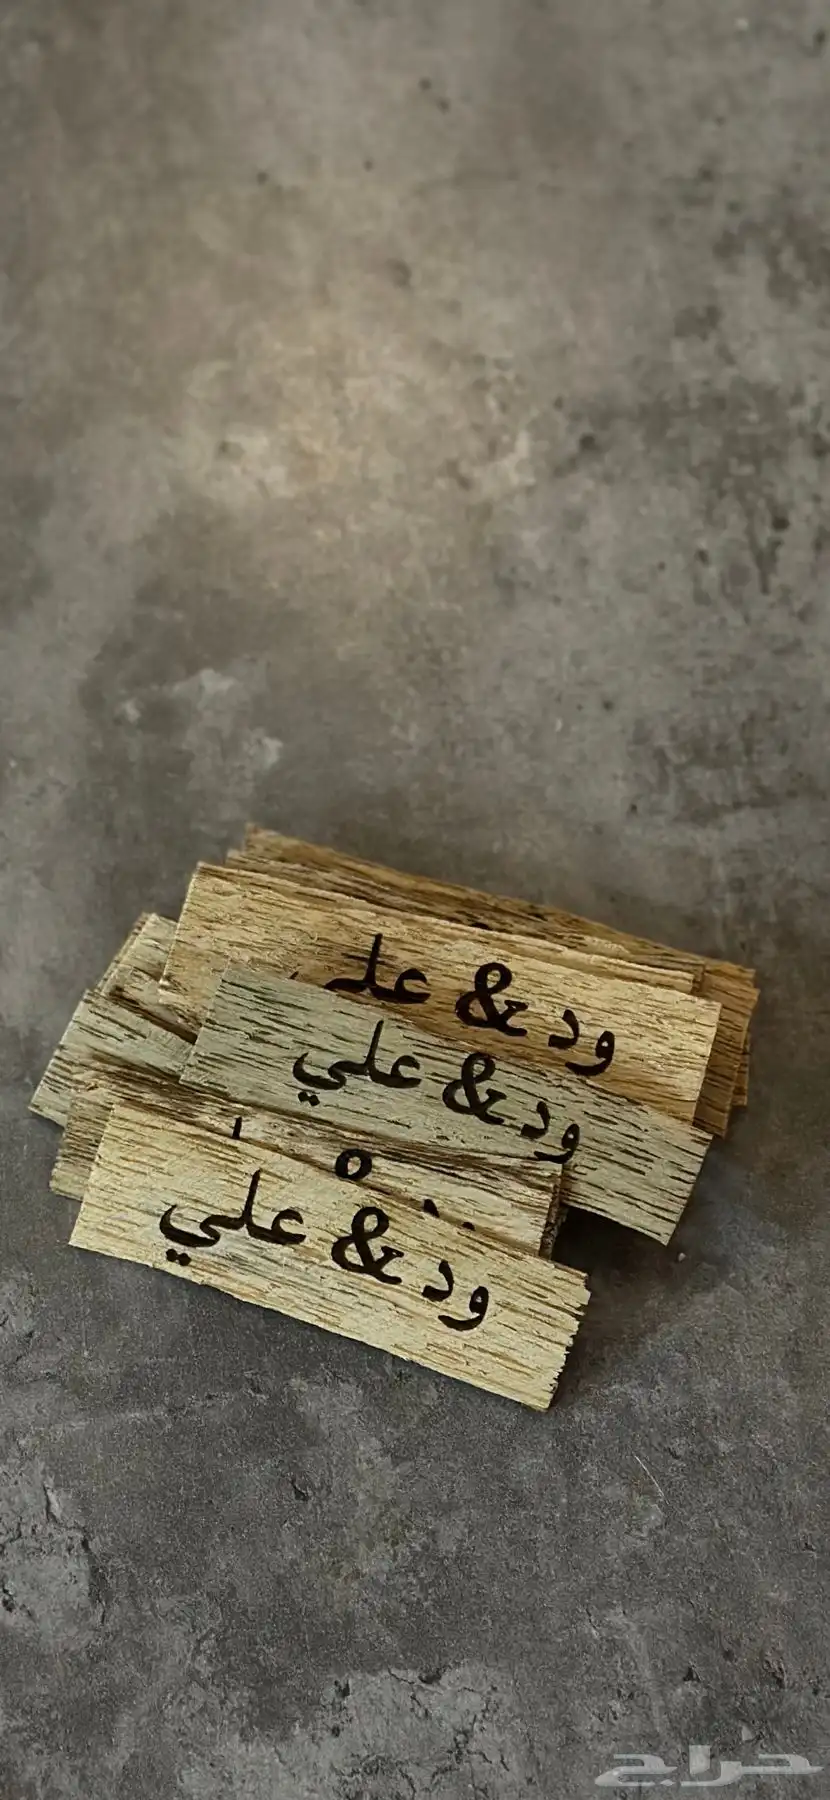 ود & علي
ود & علي
ود & علي
حراج